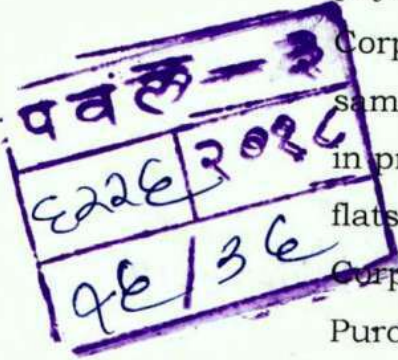 पवल - ३
६२२६ २०१८
१६ / ३६
Corp
sam
in pr
flats
Corp
Purc